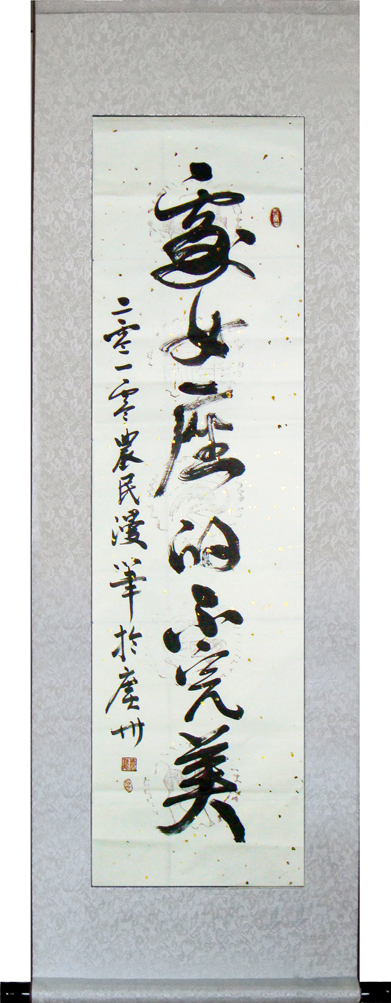 處女座的不完美
二零一零農民漫筆於廣州